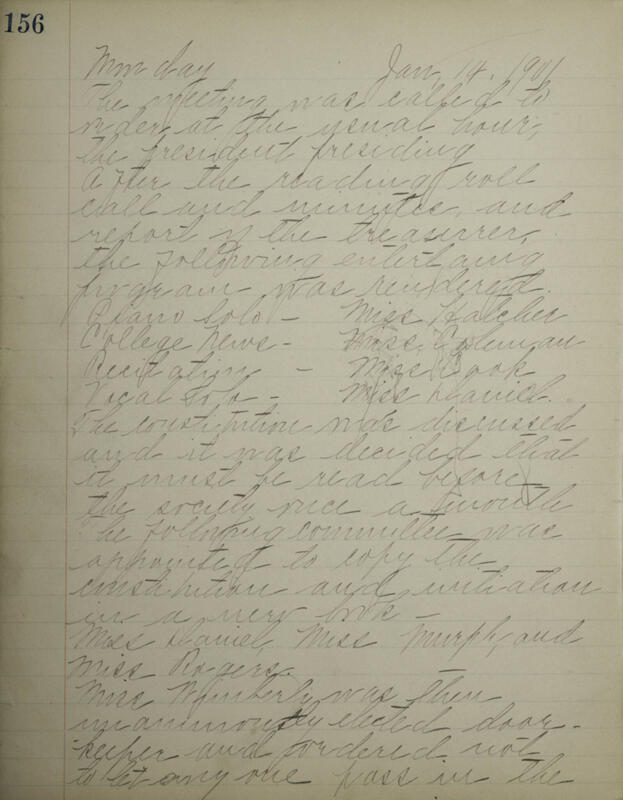 156
Monday Jan. 14. 1901
The meeting was called to
order at the usual hour,
the president presiding
After the reading roll
call and minutes, and
report of the treasurer,
the following entertaing
program was rendered.
Piano Solo - Miss Hatcher
College News - Miss Coleman
Recitation - Miss Cook
Vocal Solo - Miss Daniel.
The constitution was discussed
and it was decided that
it must be read before
the society once a month
The following committee was
appointed to copy the
constitution and initiation
in a new book -
Miss Daniel, Miss Murph, and
Miss Rogers.
Miss Wimberly was then
unanimously elected door-
keeper and ordered not
to let any one pass in the